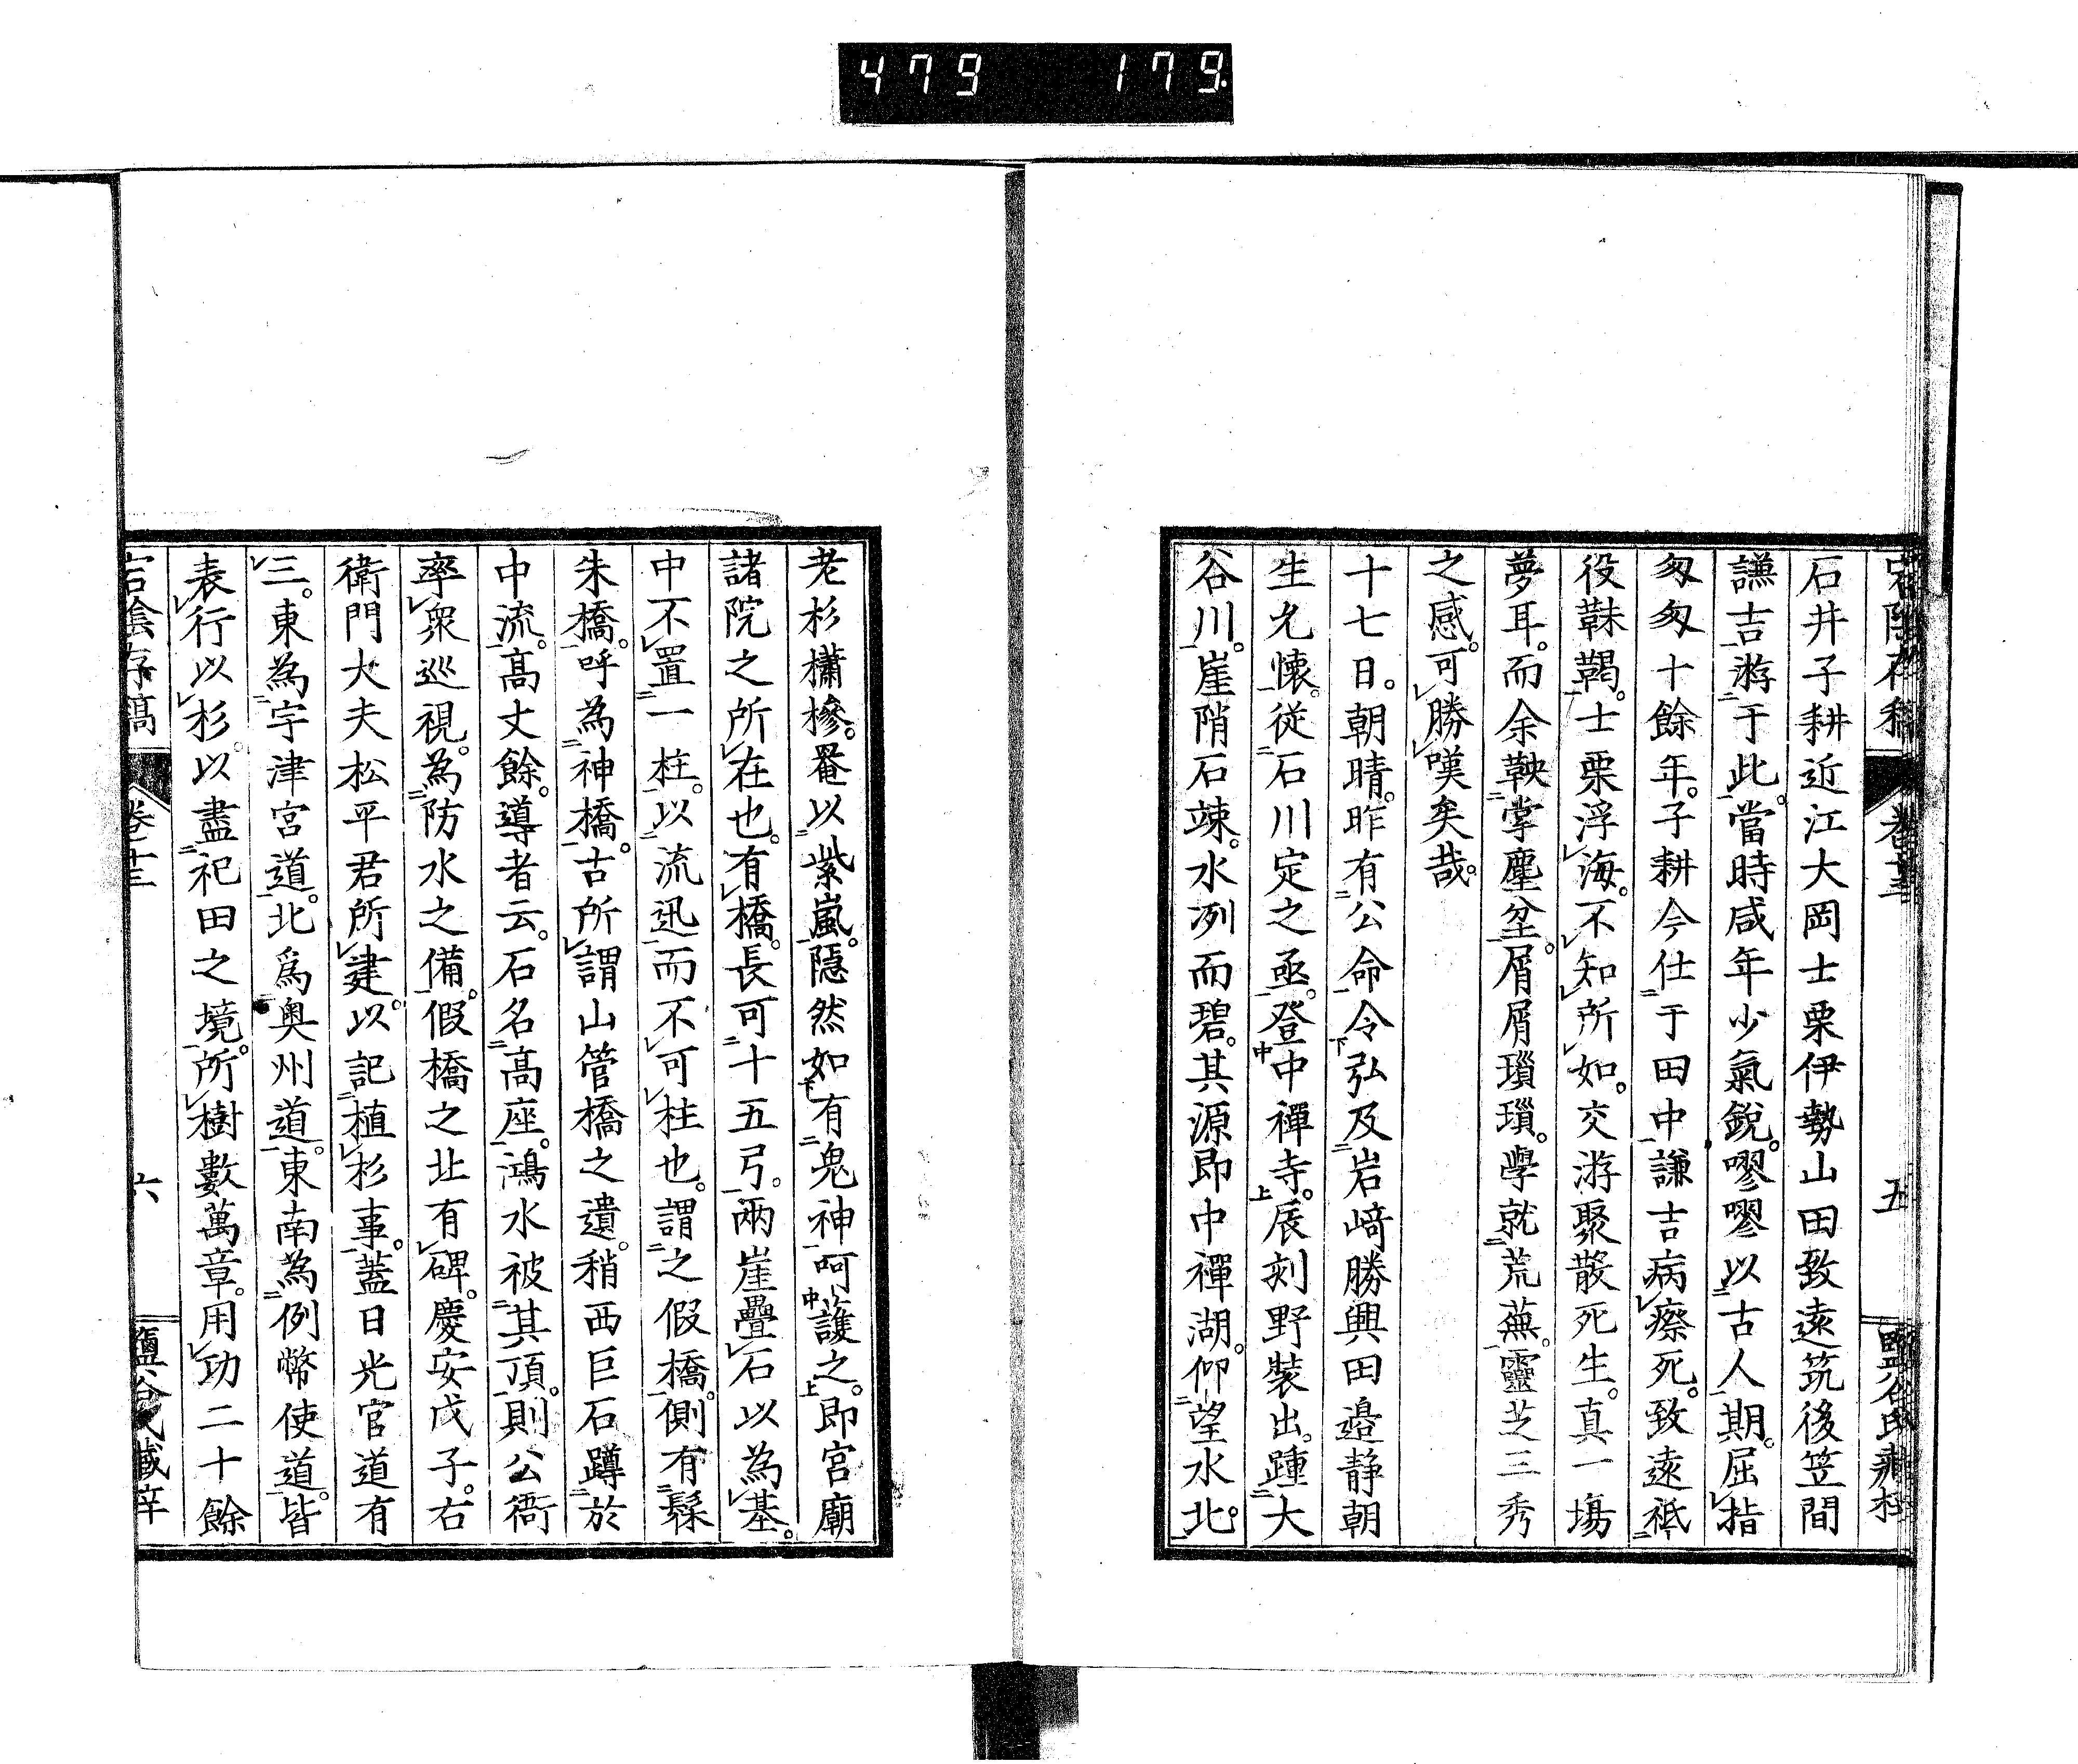 479 179.
宕陰存稿 卷十三 五 鹽谷氏藏梓
石井子耕近江大岡士栗伊勢山田致遠筑後笠間
謙吉游于此。當時咸年少氣銳。嘐嘐以古人期。屈指
匆匆十餘年。子耕今仕于田中謙吉病瘵死。致遠祗
役韎鞨。士栗浮海。不知所如。交游聚散死生。真一塲
夢耳。而余鞅掌塵坌。屑屑瑣瑣。學就荒蕪。靈芝三秀
之感。可勝嘆矣哉。
十七日。朝晴。昨有公命令弘及岩﨑勝興田邉静朝
生允懷。從石川定之亟。登中禪寺。辰刻野裝出。踵大
谷川。崖陗石竦。水冽而碧。其源即中禪湖。仰望水北。
老杉橚槮。罨以紫嵐。隱然如有鬼神呵護之。即宮廟
諸院之所在也。有橋。長可十五弓。兩崖疊石以為基。
中不置一柱。以流迅而不可柱也。謂之假橋。側有髹
朱橋。呼為神橋。古所謂山管橋之遺。稍西巨石蹲於
中流。高丈餘。導者云。石名高座。鴻水被其頂。則公衙
率衆巡視。為防水之備。假橋之北有碑。慶安戊子。右
衛門大夫松平君所建。以記植杉事。蓋日光官道有
三。東為宇津宮道。北爲奥州道。東南為例幣使道。皆
表行以杉。以盡祀田之境。所樹數萬章。用功二十餘
宕陰存稿 卷十三 六 鹽谷氏藏梓